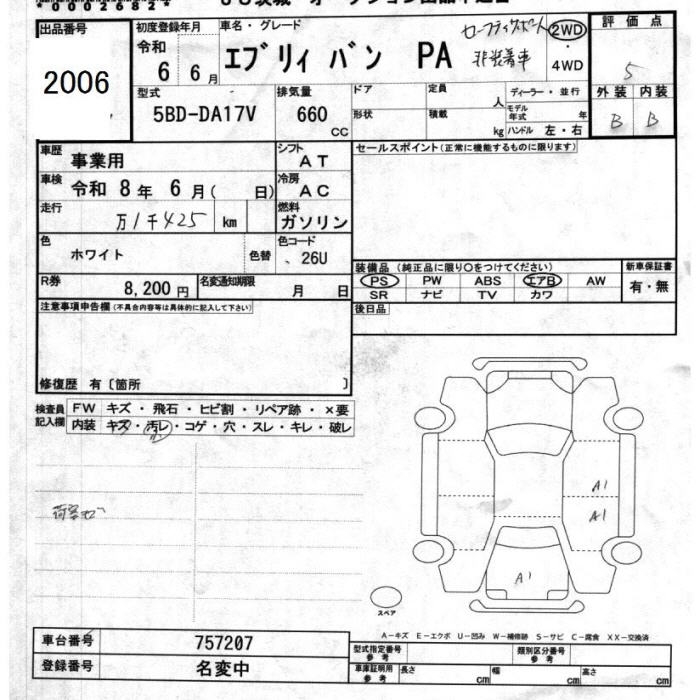 *00026824*
出品番号
2006
初度登録年月
令和
6 6月
車名・グレード
エブリィ バン PA
セーフティサポート
非装着車
2WD・
4WD
評価点
5
外装 内装
B B
型式
5BD-DA17V
排気量
660
CC
ドア
形状
定員
人
積載
kg
ディーラー・並行
モデル
年式 年
ハンドル 左・右
車歴
事業用
シフト
AT
車検
令和 8年 6月( 日)
冷房
AC
走行
万1千425 km
燃料
ガソリン
色
ホワイト
色替
色コード
26U
R券
8,200円
名変通知期限
月 日
セールスポイント(正常に機能するものに限ります)
装備品(純正品に限り○をつけてください)
PS PW ABS エアB AW
SR ナビ TV カワ
新車保証書
有・無
後日品
注意事項申告欄(不具合内容等は具体的に記入して下さい)
修復歴 有〔箇所 〕
検査員
記入欄
FW キズ・飛石・ヒビ割・リペア跡・×要
内装 キズ・汚レ・コゲ・穴・スレ・キレ・破レ
A1
A1
A1
スペア
A-キズ E-エクボ U-凹み W-補修跡 S-サビ C-腐食 XX-交換済
車台番号 757207
登録番号 名変中
型式指定番号
参考
類別区分番号
参考
車庫証明用
参考
長さ cm 幅 cm 高さ cm